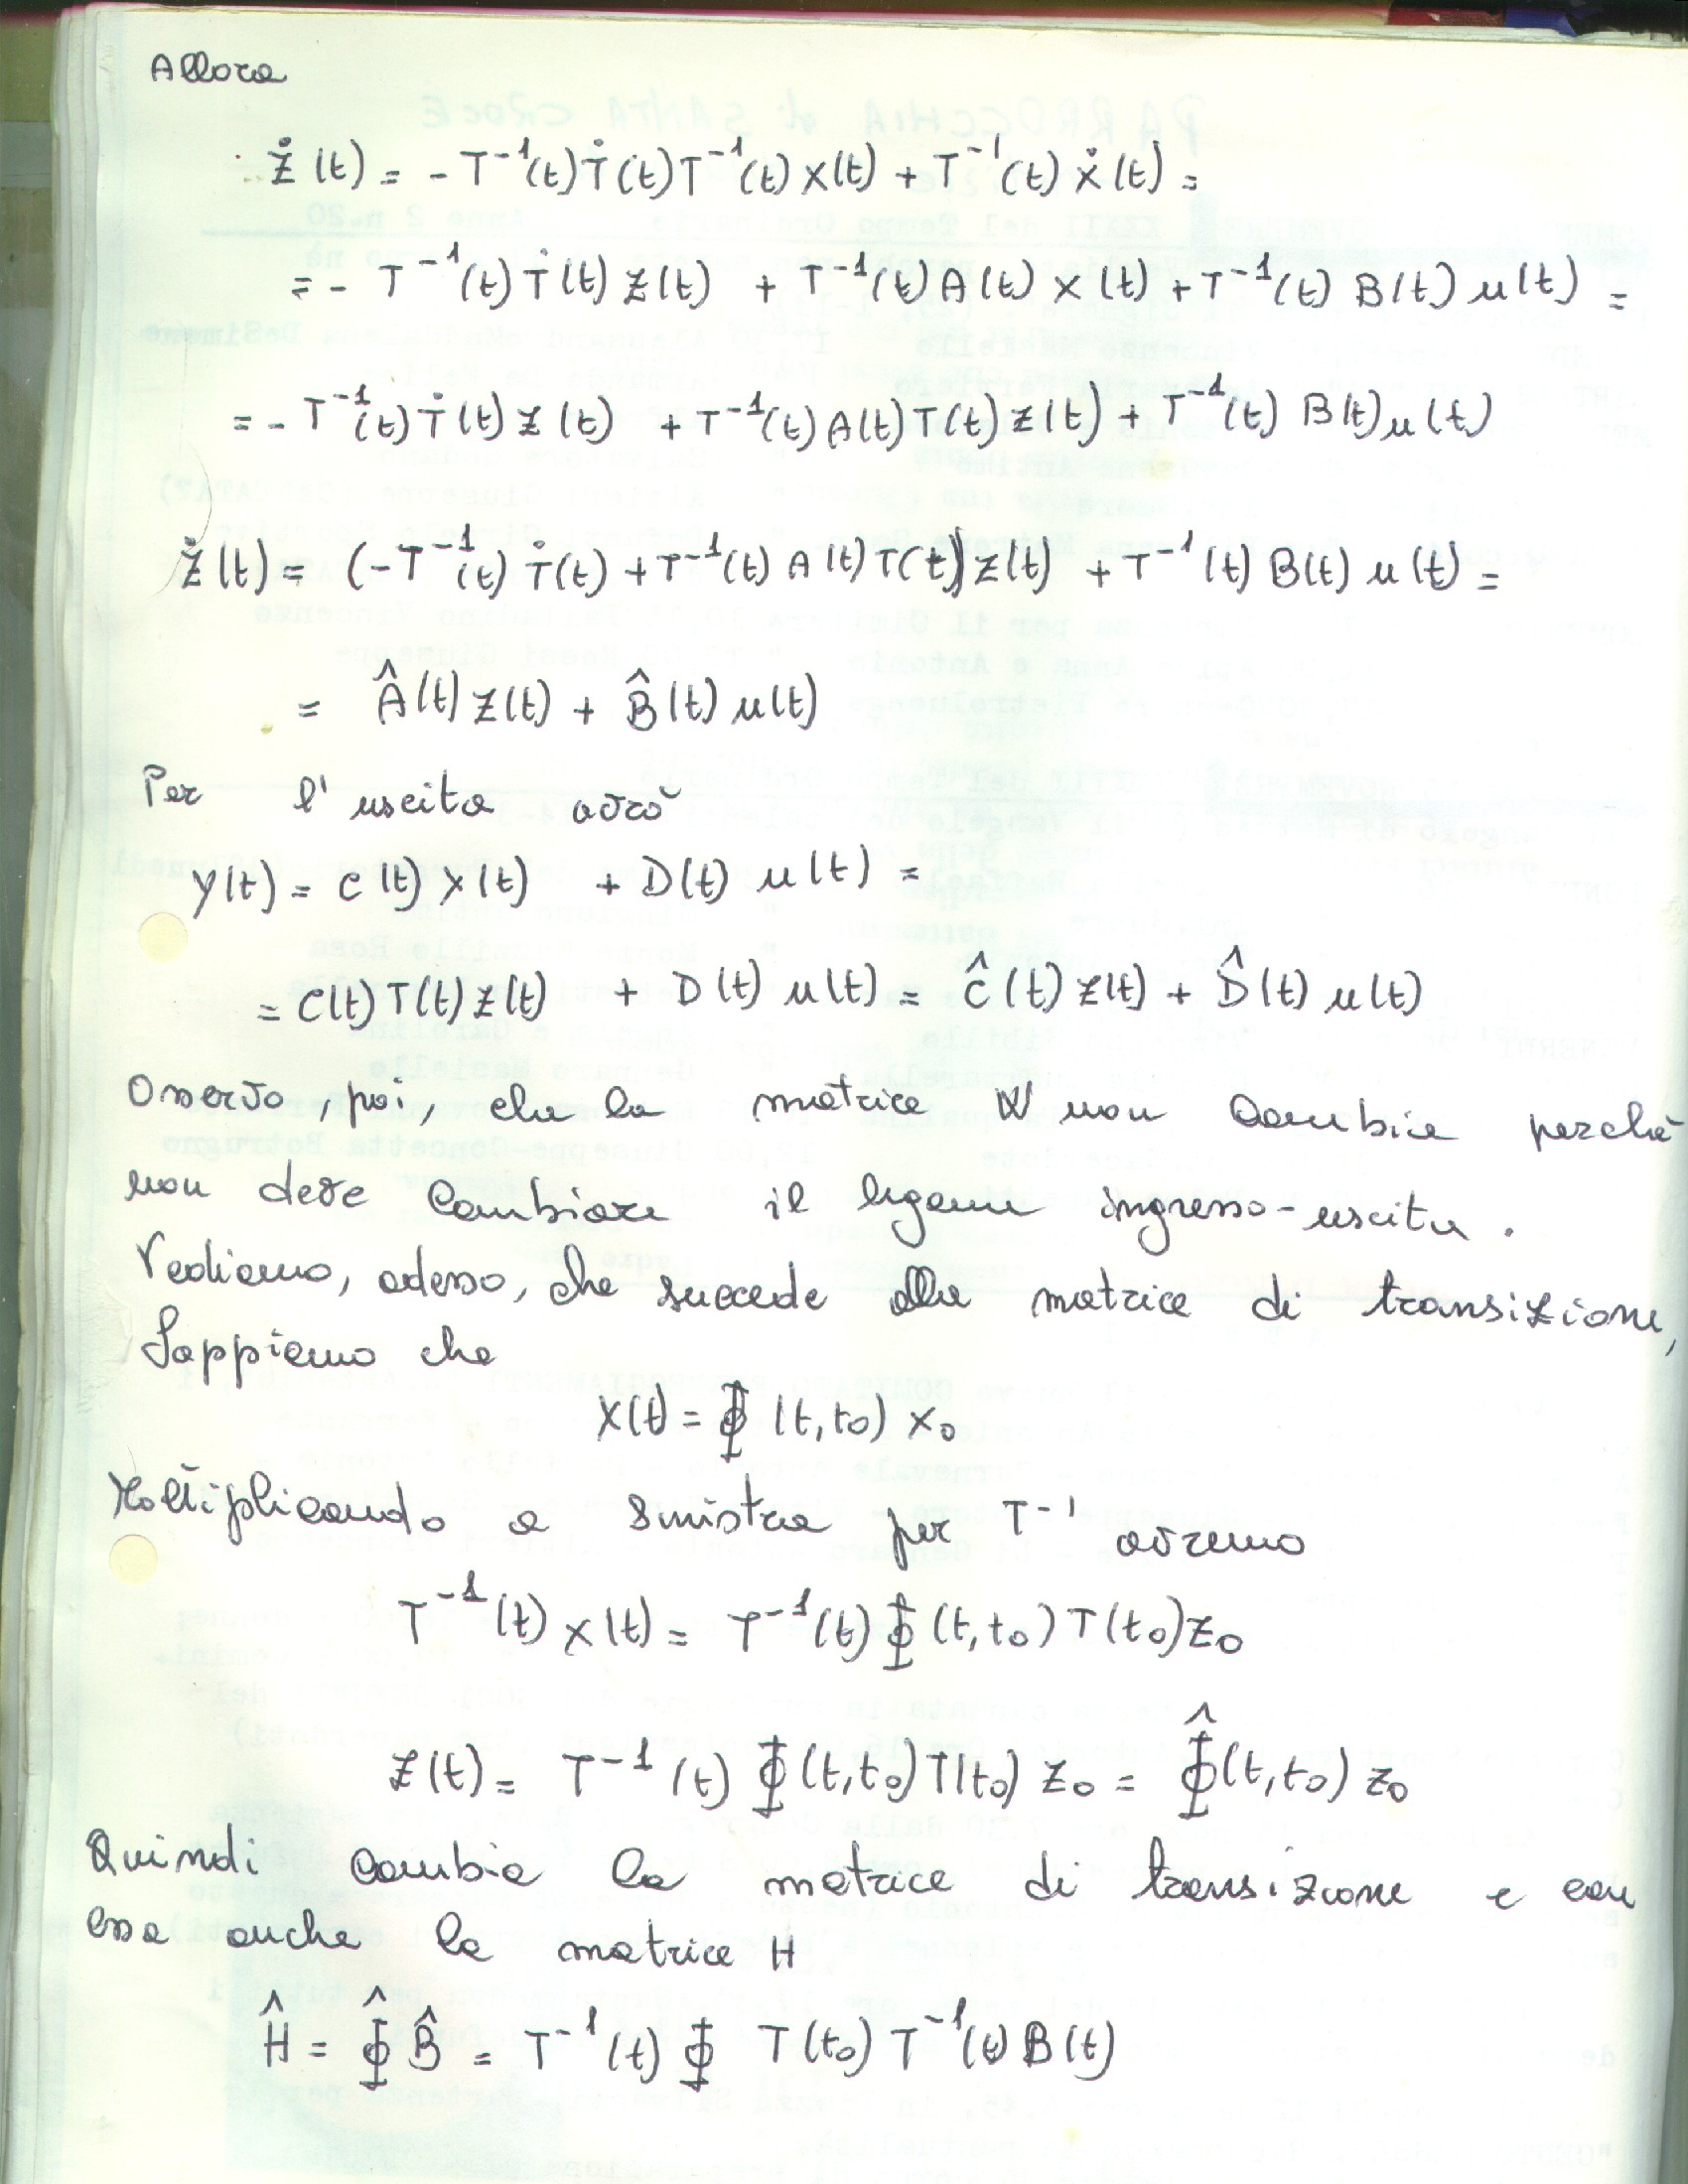 Allora
ż(t) = - T⁻¹(t) Ṫ(t) T⁻¹(t) x(t) + T⁻¹(t) ẋ(t) =
= - T⁻¹(t) Ṫ(t) z(t) + T⁻¹(t) A(t) x(t) + T⁻¹(t) B(t) u(t) =
= - T⁻¹(t) Ṫ(t) z(t) + T⁻¹(t) A(t) T(t) z(t) + T⁻¹(t) B(t) u(t)
ż(t) = (-T⁻¹(t) Ṫ(t) + T⁻¹(t) A(t) T(t)) z(t) + T⁻¹(t) B(t) u(t) =
= Â(t) z(t) + B̂(t) u(t)
Per l'uscita avrò
y(t) = C(t) x(t) + D(t) u(t) =
= C(t) T(t) z(t) + D(t) u(t) = Ĉ(t) z(t) + D̂(t) u(t)
Osservo, poi, che la matrice W non cambia perchè
non deve cambiare il legame ingresso-uscita.
Vediamo, adesso, che succede alla matrice di transizione,
Sappiamo che
x(t) = Φ(t,t₀) x₀
Moltiplicando a sinistra per T⁻¹ avremo
T⁻¹(t) x(t) = T⁻¹(t) Φ(t,t₀) T(t₀) z₀
z(t) = T⁻¹(t) Φ(t,t₀) T(t₀) z₀ = Φ̂(t,t₀) z₀
Quindi cambia la matrice di transizione e con
essa anche la matrice H
Ĥ = Φ̂ B̂ = T⁻¹(t) Φ T(t₀) T⁻¹(t) B(t)